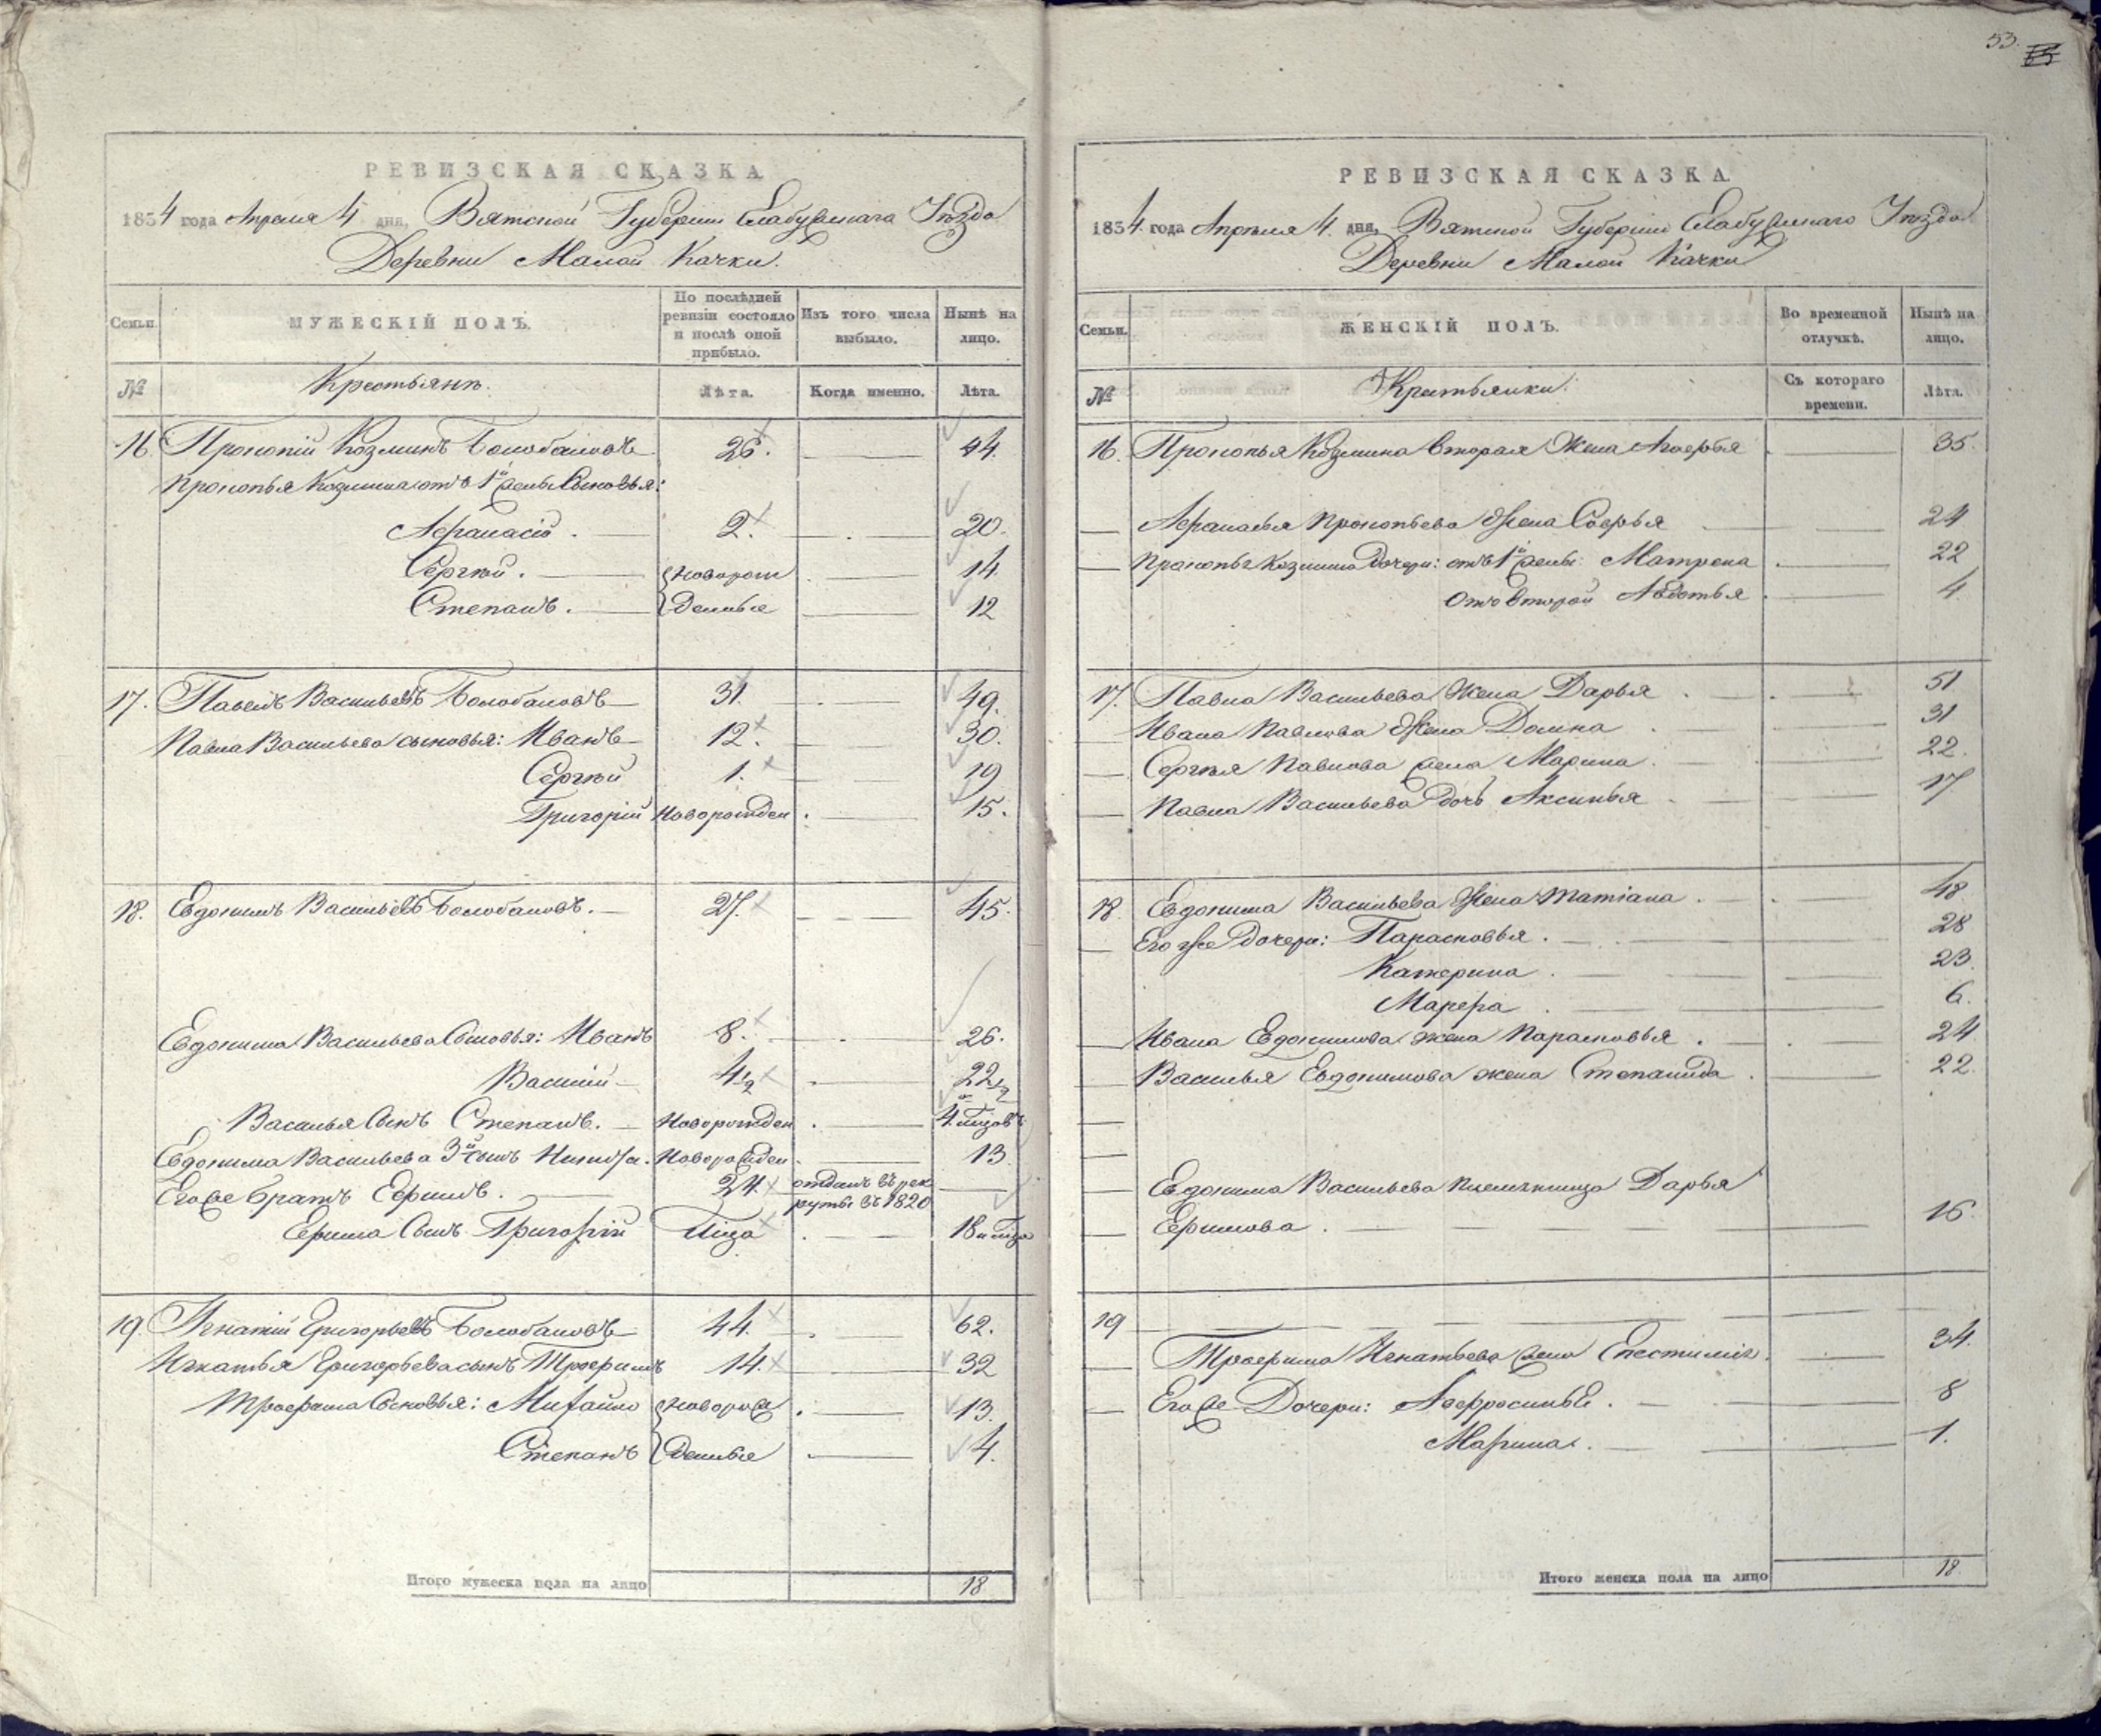 53.
РЕВИЗСКАЯ СКАЗКА
1834 года Апреля 4 дня, Вятской Губернии Елабужскаго Уезда
Деревни Малой Качки.
Семьи.
МУЖЕСКІЙ ПОЛЪ.
По послѣдней ревизіи состояло и послѣ оной прибыло.
Изъ того числа выбыло.
Нынѣ на лицо.
№
Крестьяне.
Лѣта.
Когда именно.
Лѣта.
16. Прокопій Козминъ Болобановъ 26. 44.
Прокопья Козмина отъ 1й жены Сыновья:
Афанасій. 2. 20.
Сергѣй. новорож 14.
Степанъ. денные 12
17. Павелъ Васильевъ Болобановъ 31. 49.
Павла Васильева сыновья: Иванъ 12. 30.
Сергѣй 1. 19
Григорій Новорожден 15.
18. Евдокимъ Васильевъ Болобановъ. 27. 45.
Евдокима Васильева Сыновья: Иванъ 8. 26.
Василій 4 1/2 22 1/2
Василья Сынъ Степанъ. Новорожден 4.
Евдокима Васильева 3й сынъ Новорожден 13
Егоже братъ Ефимъ. 24. отданъ въ рек
руты въ 1820
Ефима Сынъ Григорій 18
19. Игнатій Григорьевъ Болобановъ 44. 62.
Игнатья Григорьева сынъ Трофимъ 14. 32
Трофима Сыновья: Михайло новорож 13.
Степанъ денные 4.
Итого мужеска пола на лицо 18
РЕВИЗСКАЯ СКАЗКА.
1834. года Апрѣля 4. дня, Вятской Губерніи Елабужскаго Уезда
Деревни Малой Качки
Семьи.
ЖЕНСКІЙ ПОЛЪ.
Во временной отлучкѣ.
Нынѣ на лицо.
№
Крестьянки.
Съ котораго времени.
Лѣта.
16. Прокопья Козмина вторая Жена Агафья 35.
Афанасья Прокопьева Жена Софья 24
Прокопья Козмина Дочери: отъ 1й жены: Матрена 22
Отъ второй Авдотья 4.
17. Павла Васильева Жена Дарья 51
Ивана Павлова Жена Домна 31
Сергѣя Павлова жена Марина. 22.
Павла Васильева дочь Аксинья 17
18. Евдокима Васильева Жена Татіана 48.
Его же Дочери: Парасковья. 28
Катерина. 23.
Марфа 6.
Ивана Евдокимова жена Парасковья. 24.
Василья Евдокимова жена Степанида 22.
Евдокима Васильева племянница Дарья
Ефимова. 16.
19
Трофима Игнатьева жена 34.
Егоже Дочери: 8
Марина. 1.
Итого женска пола на лицо 18.